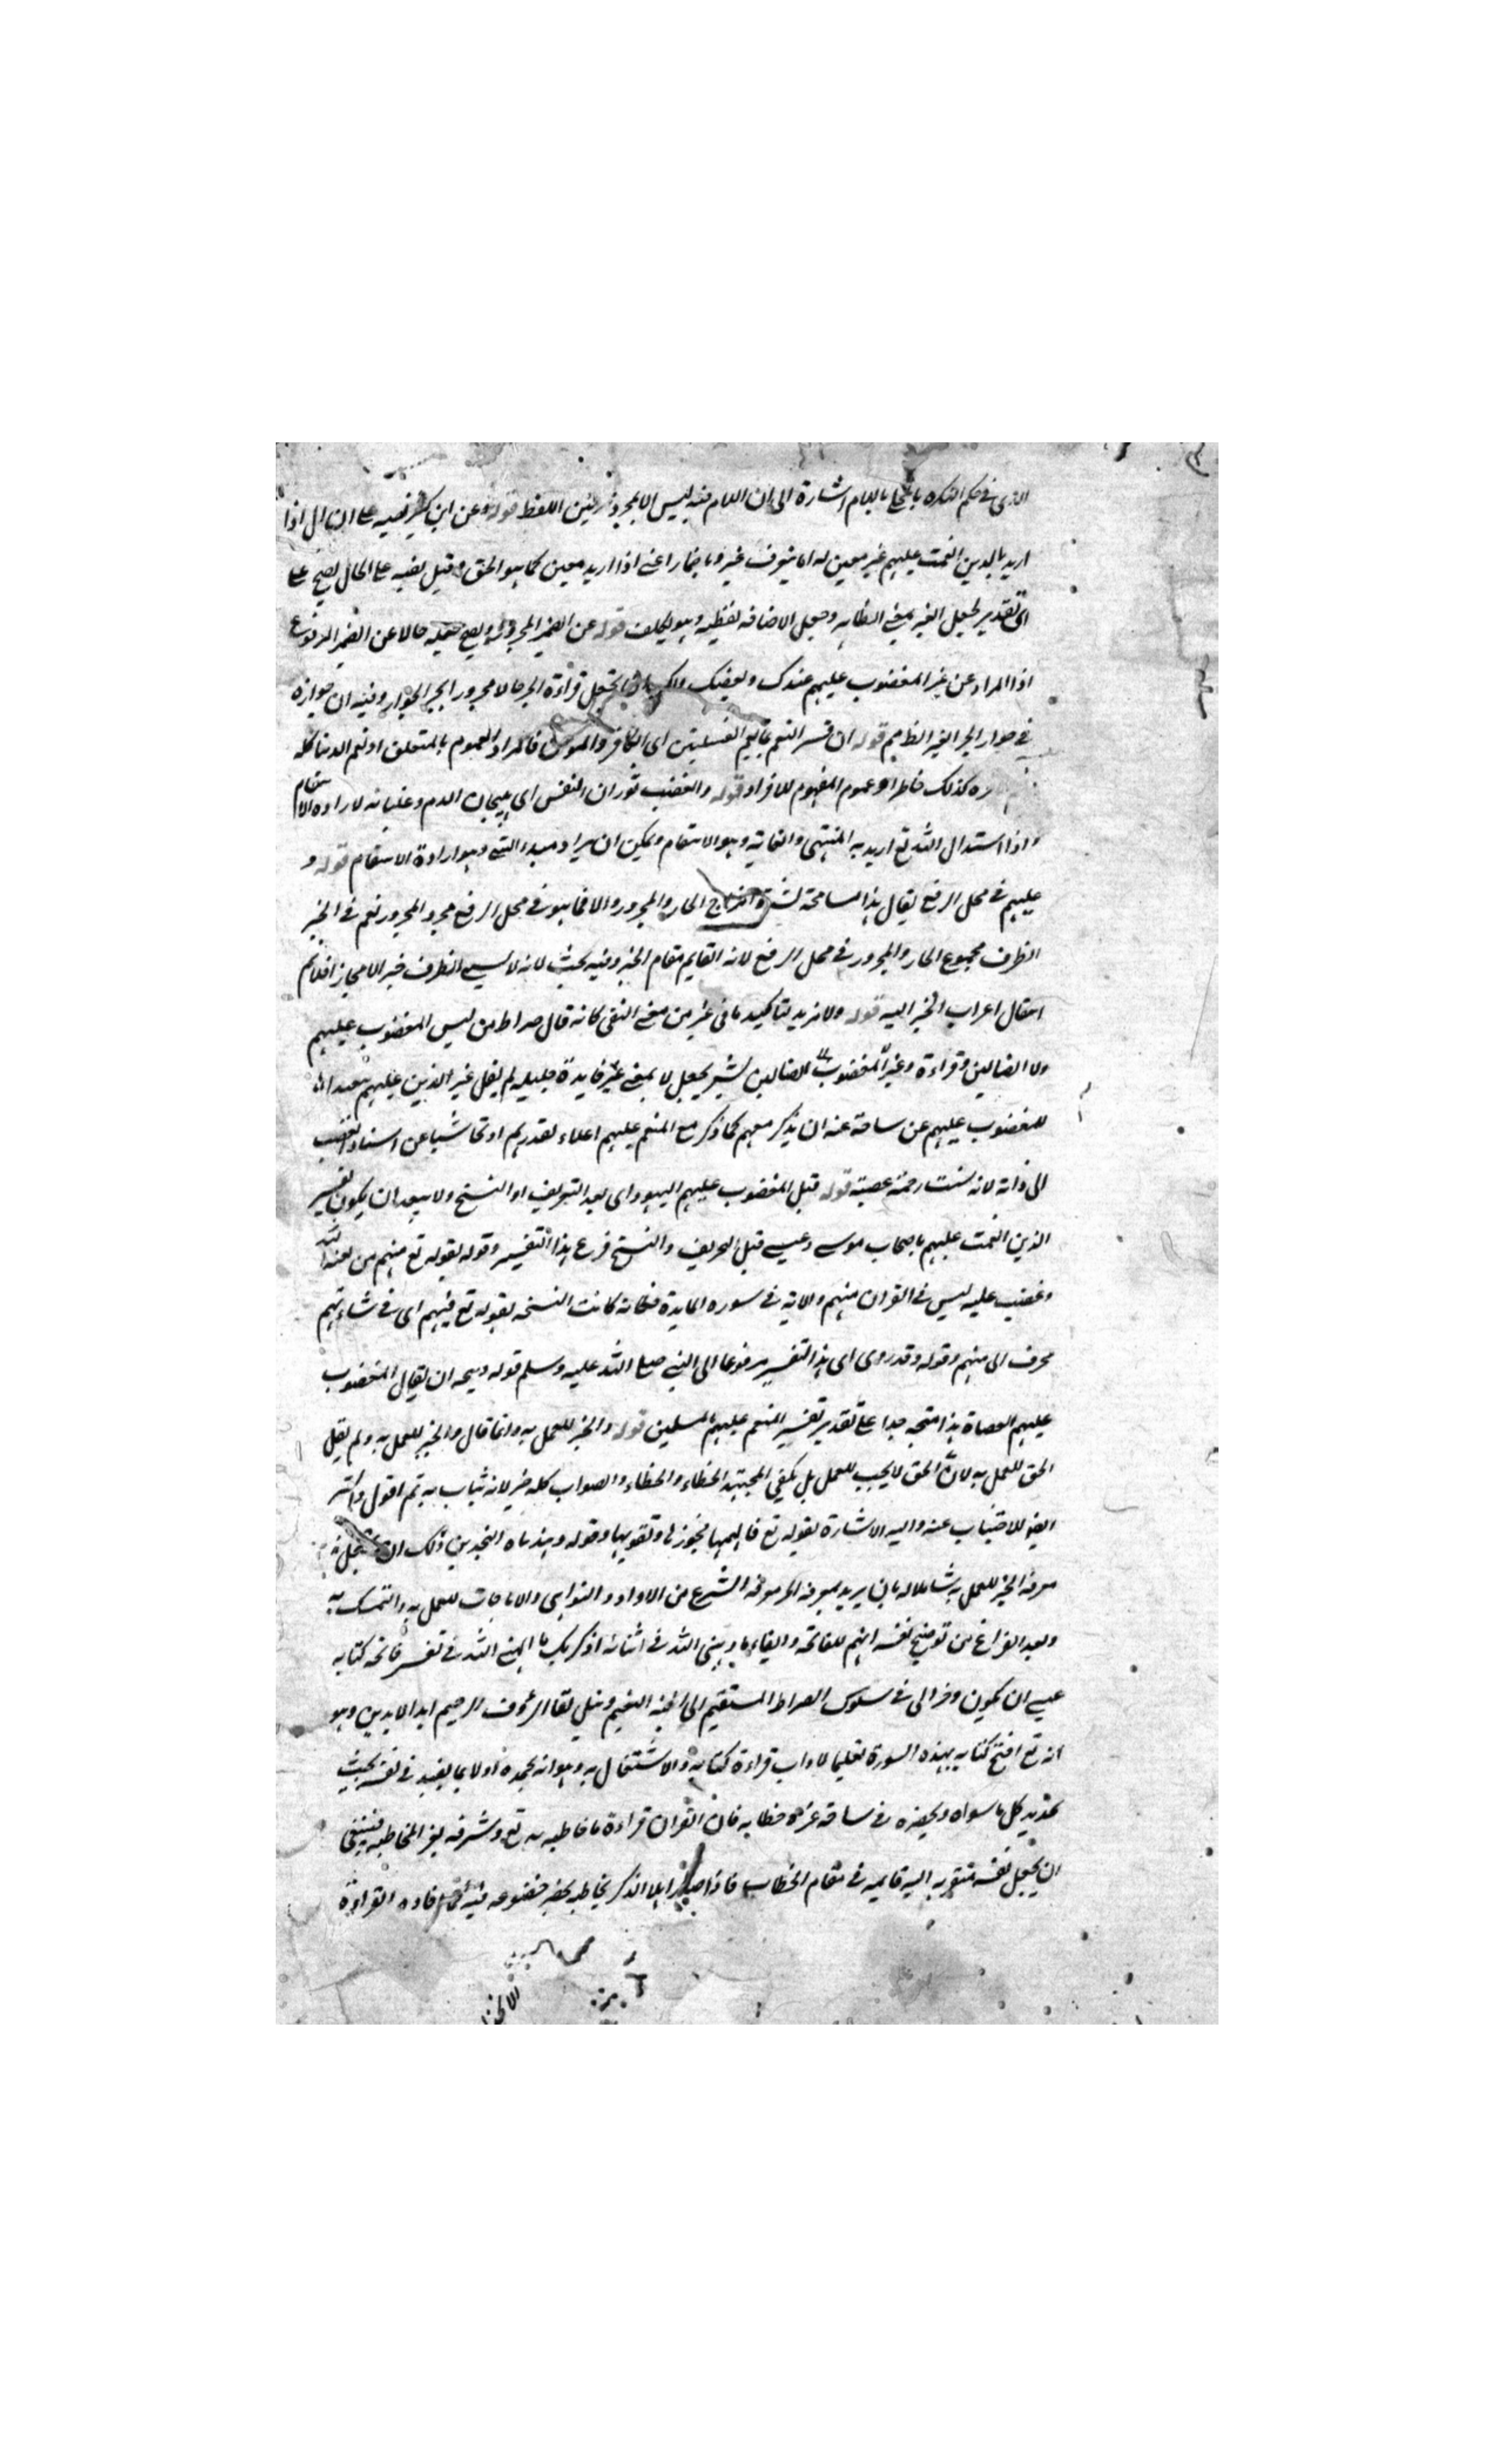 الذى فى حكم النكره بالمحلى باللام اشارة الى ان اللام فيه ليس الا لمجرد تزيين اللفظ قوله وعن ابن كثير نصبه على الحال اذا
اريد بالذين انعمت عليهم غير معين له اما يتعرف غير وما يضار اعنى اذا اريد معين كما هو الحق وقيل نصبه على الحال يصح على
اى تقدير لجعل الغير بمعنى المغاير وجعل الاضافه لفظيه وهو تكلف قوله عن الضمير المجرور ويصح جعله حالا عن الضمير المرفوع
اذا المراد عن غير المغضوب عليهم عندك وبعضك تجعل قراءة الجر حالا مجرورا لجر الجوار وفيه ان جوازه
فى جوار الجر الغير الظاهر قوله ان فسر النعم بما يعم القبيلتين اى الكافر والمومن فالمراد العموم بالمتعلق او نعم الدنيا كله
كذلك عموم المفهوم للافراد قوله والغضب ثوران النفس اى هيجان الدم وغليانه لاراده الانتقام
واذا اسند الى الله تع اريد به المنتهى والغاية وهو الانتقام ويمكن ان يراد مبدء الشئ وهو ارادة الانتقام قوله و
عليهم فى محل الرفع يقال هذا مسامحة لشدة امتزاج الجار والمجرور والا فما هو فى محل الرفع مجرد المجرور نعم فى الخبر
الظرف مجموع الجار والمجرور فى محل الرفع لانه القايم مقام الخبر وفيه بحث لانه لا يسمى الظرف خبر الا مجازا فلا يتم
انتقال اعراب الخبر اليه قوله ولا مزيد لتاكيد ما فى غير من معنى النفى كانه قال صراط من ليس المغضوب عليهم
ولا الضالين وقراءة وغير المغضوب الضالين يشير بجعل لا بمعنى غير فايدة جليله لم يقل غير الذين عليهم تبعيدا
للمغضوب عليهم عن ساحة عنه ان يذكر معهم كما ذكر مع المنعم عليهم اعلاء لقدرهم او تحاشيا عن اسناد الغضب
الى ذاته لانه سبقت رحمته غضبه قوله قيل المغضوب عليهم اليهود اى بعد التحريف او النسخ ولا يبعد ان يكون تفسير
الذين انعمت عليهم باصحاب موسى وعيسى قبل التحريف والنسخ فرع هذا التفسير وقوله لقوله تع منهم من لعنه الله
وغضب عليه ليس فى القران منهم والاية فى سوره المايدة فكانه كانت النسخه لقوله تع فيهم اى فى شانهم
محرف الى منهم وقوله وقد روى اى هذا التفسير مرفوعا الى النبى صلى الله عليه وسلم قوله ويتجه ان يقال المغضوب
عليهم العصاة هذا متجه جدا على تقدير تفسير المنعم عليهم بالمسلمين قوله والخير للعمل به وانما قال والخير للعمل به ولم يقل
الحق للعمل به لان الحق لا يجب للعمل بل يكفى المجتهد الخطاء والخطاء والصواب كله خير لانه يثاب به ثم اقول والشر
ايضا للاجتناب عنه واليه الاشارة بقوله تع فالهمها فجورها وتقويها وقوله وهديناه النجدين
معرفة الخير للعمل به شاملا له بان يريد بمعرفة الخير معرفة الشرع من الاوامر والنواهى والاباحات للعمل به والتمسك به
وبعد الفراغ من توضيح تفسيرهم للفاتحة وايفاء ما وهبنى الله فى اثنائه اذكر بك ما الهمنى الله فى تفسير فاتحة كتابه
عسى ان يكون وفر الى فى سلوك الصراط المستقيم الى الجنة النعيم ونيل لقا الرؤف الرحيم ابد الابدين وهو
انه تع افتتح كتابه بهذه السورة تعليما لاداب قراءة كتابه والاشتغال به وهو انه يحمده اولا بما يفيد فى نفسه بحيث
كل ما سواه ويحضره فى ساحة عز خطابه فان القران قراءة ما خاطبه به تع وشرفه بعز المخاطبه فينبغى
ان يجعل نفسه متوجه اليه قايمه فى مقام الخطاب فاذا صار اهلا الذكر يخاطبه القراءة